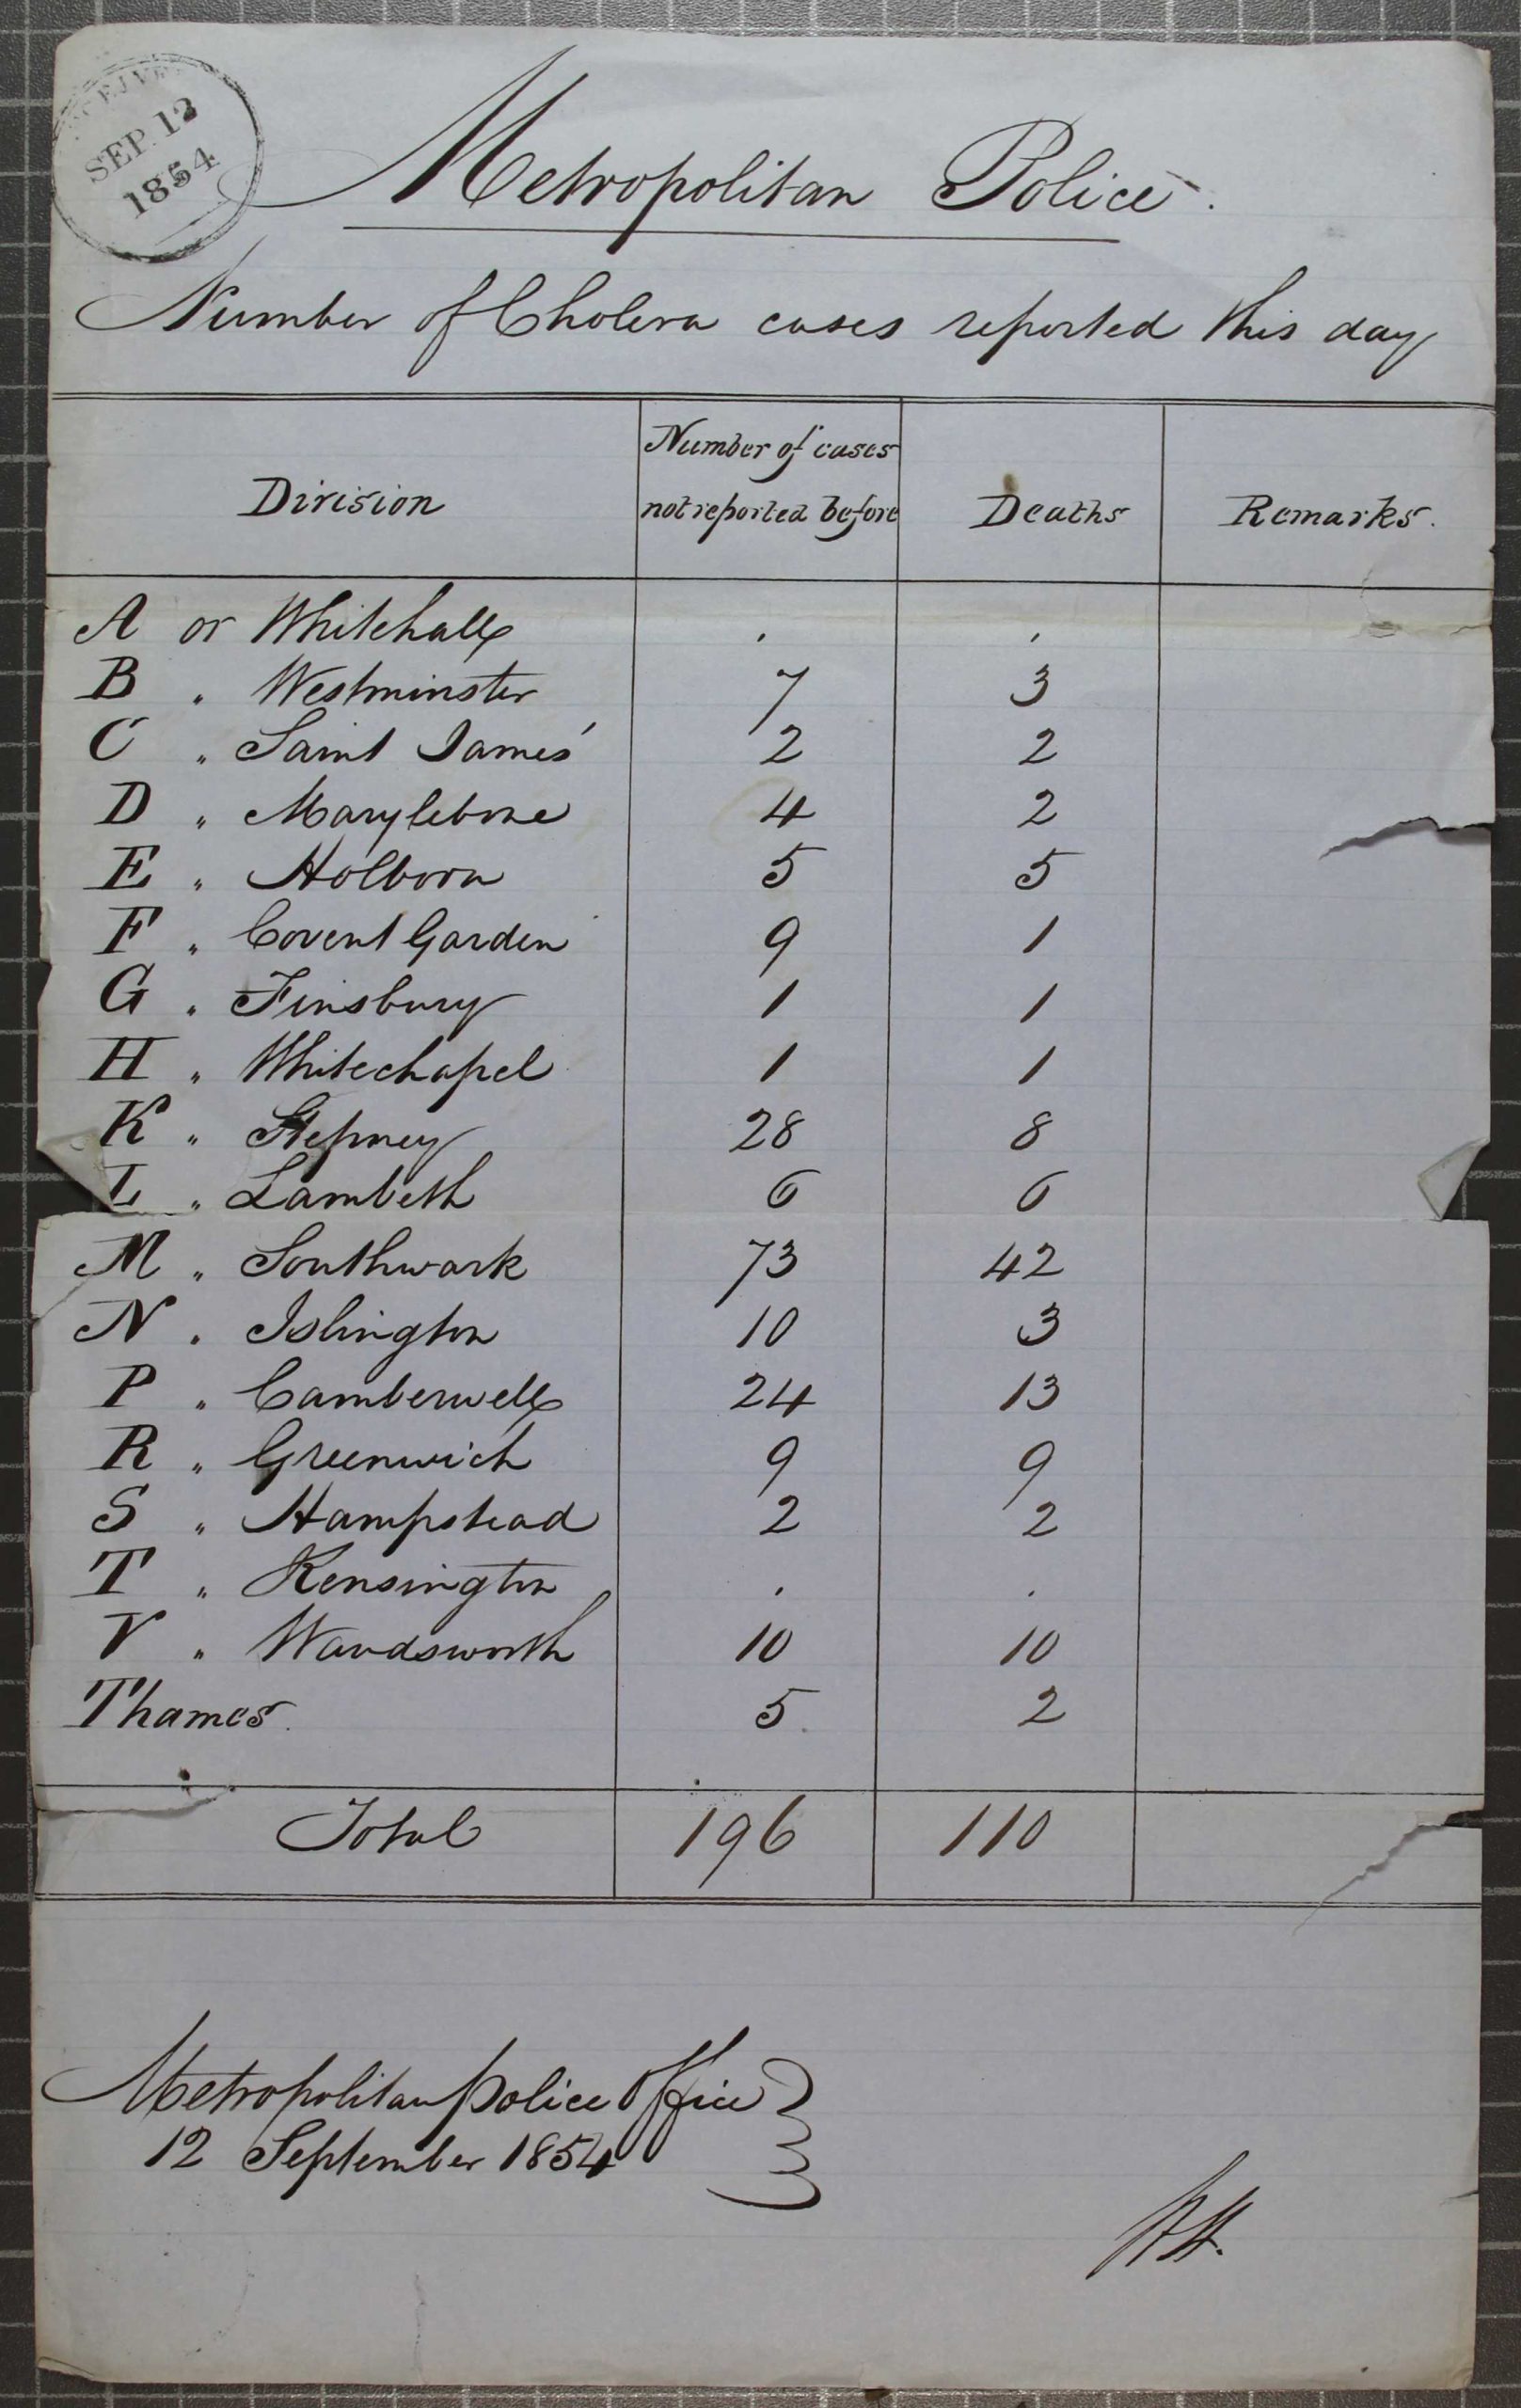 RECEIVED
SEP. 12
1854
Metropolitan Police.
Number of Cholera cases reported this day
Division | Number of cases not reported before | Deaths | Remarks.
A or Whitehall . .
B " Westminster 7 3
C " Saint James' 2 2
D " Marylebone 4 2
E " Holborn 5 5
F " Covent Garden 9 1
G " Finsbury 1 1
H " Whitechapel 1 1
K " Stepney 28 8
L " Lambeth 6 6
M " Southwark 73 42
N " Islington 10 3
P " Camberwell 24 13
R " Greenwich 9 9
S " Hampstead 2 2
T " Kensington . .
V " Wandsworth 10 10
Thames. 5. 2
Total 196 110
Metropolitan Police Office
12 September 1854